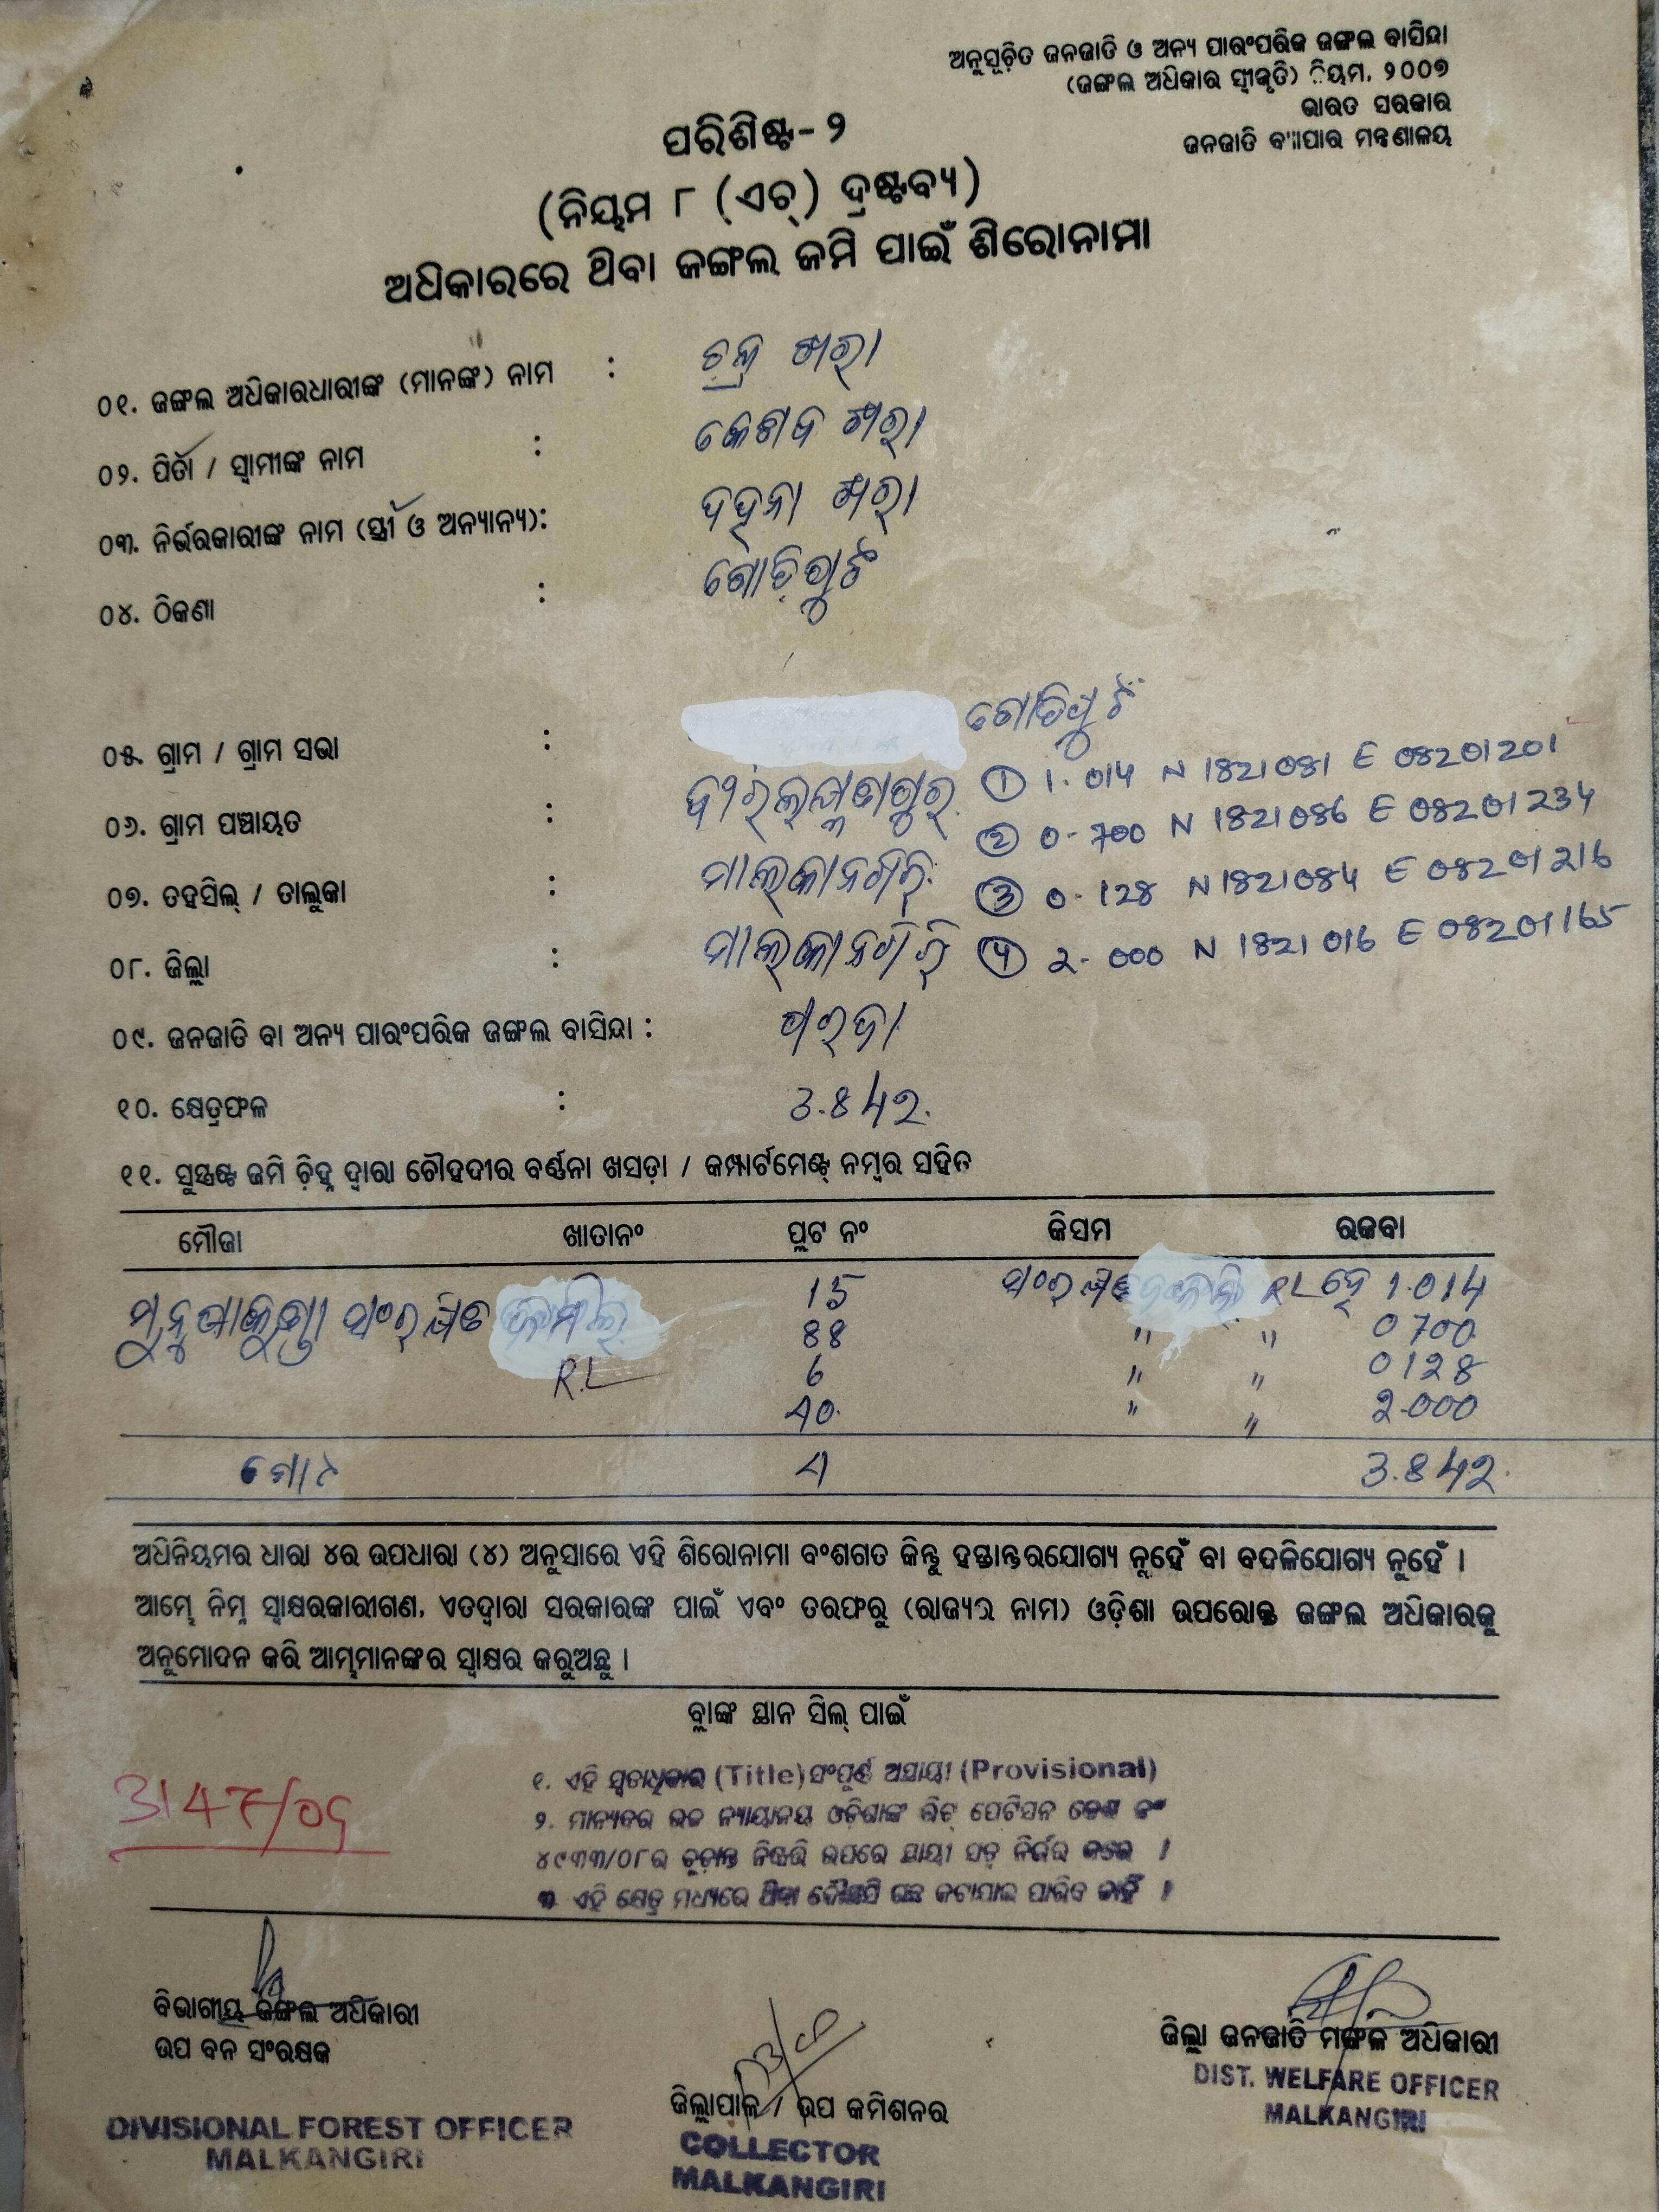 ଅନୁସୂଚିତ ଜନଜାତି ଓ ଅନ୍ୟ ପାରଂପରିକ ଜଙ୍ଗଲ ବାସିନ୍ଦା
(ଜଙ୍ଗଲ ଅଧିକାର ସ୍ୱୀକୃତି) ନିୟମ, ୨୦୦୭
ଭାରତ ସରକାର
ଜନଜାତି ବ୍ୟାପାର ମନ୍ତ୍ରଣାଳୟ
ପରିଶିଷ୍ଟ-୨
(ନିୟମ ୮ (ଏଚ୍) ଦ୍ରଷ୍ଟବ୍ୟ)
ଅଧିକାରରେ ଥିବା ଜଙ୍ଗଲ ଜମି ପାଇଁ ଶିରୋନାମା
୦୧. ଜଙ୍ଗଲ ଅଧିକାରଧାରୀଙ୍କ (ମାନଙ୍କ) ନାମ : ଖରା
୦୨. ପିତା / ସ୍ୱାମୀଙ୍କ ନାମ : କେଶବ ଖରା
୦୩. ନିର୍ଭରକାରୀଙ୍କ ନାମ (ସ୍ତ୍ରୀ ଓ ଅନ୍ୟାନ୍ୟ): ଖରା
୦୪. ଠିକଣା :
୦୫. ଗ୍ରାମ / ଗ୍ରାମ ସଭା :
୦୬. ଗ୍ରାମ ପଞ୍ଚାୟତ : ① 1.014 N 1821081 E 08201201
② 0-700 N 1821086 E 08201234
୦୭. ତହସିଲ୍ / ତାଲୁକା : ମାଲକାନଗିରି ③ 0-128 N 1821084 E 08201216
୦୮. ଜିଲ୍ଲା : ମାଲକାନଗିରି ④ 2-000 N 1821016 E 08201165
୦୯. ଜନଜାତି ବା ଅନ୍ୟ ପାରଂପରିକ ଜଙ୍ଗଲ ବାସିନ୍ଦା : ପରଜା
୧୦. କ୍ଷେତ୍ରଫଳ : 3.842.
୧୧. ସୁସ୍ପଷ୍ଟ ଜମି ଚିହ୍ନ ଦ୍ୱାରା ଚୌହଦୀର ବର୍ଣ୍ଣନା ଖସଡ଼ା / କମ୍ପାର୍ଟମେଣ୍ଟ୍ ନମ୍ବର ସହିତ
ମୌଜା ଖାତାନଂ ପ୍ଲଟ ନଂ କିସମ ରକବା
ସଂରକ୍ଷିତ 15 ସଂରକ୍ଷିତ RL ହେ 1.014
88 " " 0700
R.L 6 " " 0128
40. " " 2.000
ମୋଟ 4 3.842.
ଅଧିନିୟମର ଧାରା ୪ର ଉପଧାରା (୪) ଅନୁସାରେ ଏହି ଶିରୋନାମା ବଂଶଗତ କିନ୍ତୁ ହସ୍ତାନ୍ତରଯୋଗ୍ୟ ନୁହେଁ ବା ବଦଳିଯୋଗ୍ୟ ନୁହେଁ ।
ଆମ୍ଭେ ନିମ୍ନ ସ୍ୱାକ୍ଷରକାରୀଗଣ, ଏତଦ୍ୱାରା ସରକାରଙ୍କ ପାଇଁ ଏବଂ ତରଫରୁ (ରାଜ୍ୟର ନାମ) ଓଡ଼ିଶା ଉପରୋକ୍ତ ଜଙ୍ଗଲ ଅଧିକାରକୁ
ଅନୁମୋଦନ କରି ଆମ୍ଭମାନଙ୍କର ସ୍ୱାକ୍ଷର କରୁଅଛୁ ।
ବ୍ଲାଙ୍କ ସ୍ଥାନ ସିଲ୍ ପାଇଁ
୧. ଏହି ସ୍ୱତାଧିକାର (Title) ସଂପୂର୍ଣ୍ଣ ଅସ୍ଥାୟୀ (Provisional)
୨. ମାନ୍ୟବର ଉଚ୍ଚ ନ୍ୟାୟାଳୟ ଓଡ଼ିଶାଙ୍କ ରିଟ୍ ପେଟିସନ କେଶ ନଂ
୪୯୩୩/୦୮ର ଚୂଡ଼ାନ୍ତ ନିଷ୍ପତ୍ତି ଉପରେ ସ୍ଥାୟୀ ସତ୍ୱ ନିର୍ଭର କରେ ।
୩. ଏହି କ୍ଷେତ୍ର ମଧ୍ୟରେ ଥିବା କୌଣସି ଗଛ କଟାଯାଇ ପାରିବ ନାହିଁ ।
ବିଭାଗୀୟ ଜଙ୍ଗଲ ଅଧିକାରୀ
ଉପ ବନ ସଂରକ୍ଷକ
DIVISIONAL FOREST OFFICER
MALKANGIRI
ଜିଲ୍ଲାପାଳ / ଉପ କମିଶନର
COLLECTOR
MALKANGIRI
ଜିଲ୍ଲା ଜନଜାତି ମଙ୍ଗଳ ଅଧିକାରୀ
DIST. WELFARE OFFICER
MALKANGIRI